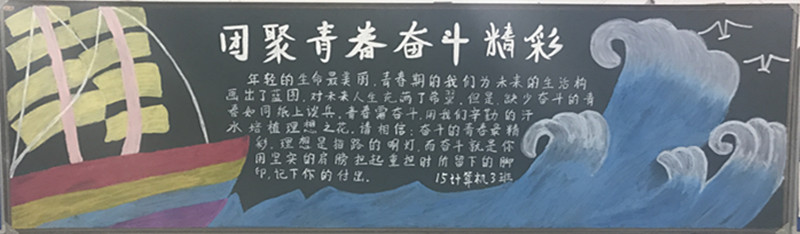 团聚青春奋斗精彩
年轻的生命最美丽,青春期的我们为未来的生活构
画出了蓝图,对未来人生充满了希望,但是,缺少奋斗的青
春如同纸上谈兵,青春需奋斗,用我们辛勤的汗
水培植理想之花,请相信:奋斗的青春最精
彩,理想是指路的明灯,而奋斗就是你
用坚实的肩膀担起重担时所留下的脚
印,记下你的付出。
15计算机3班